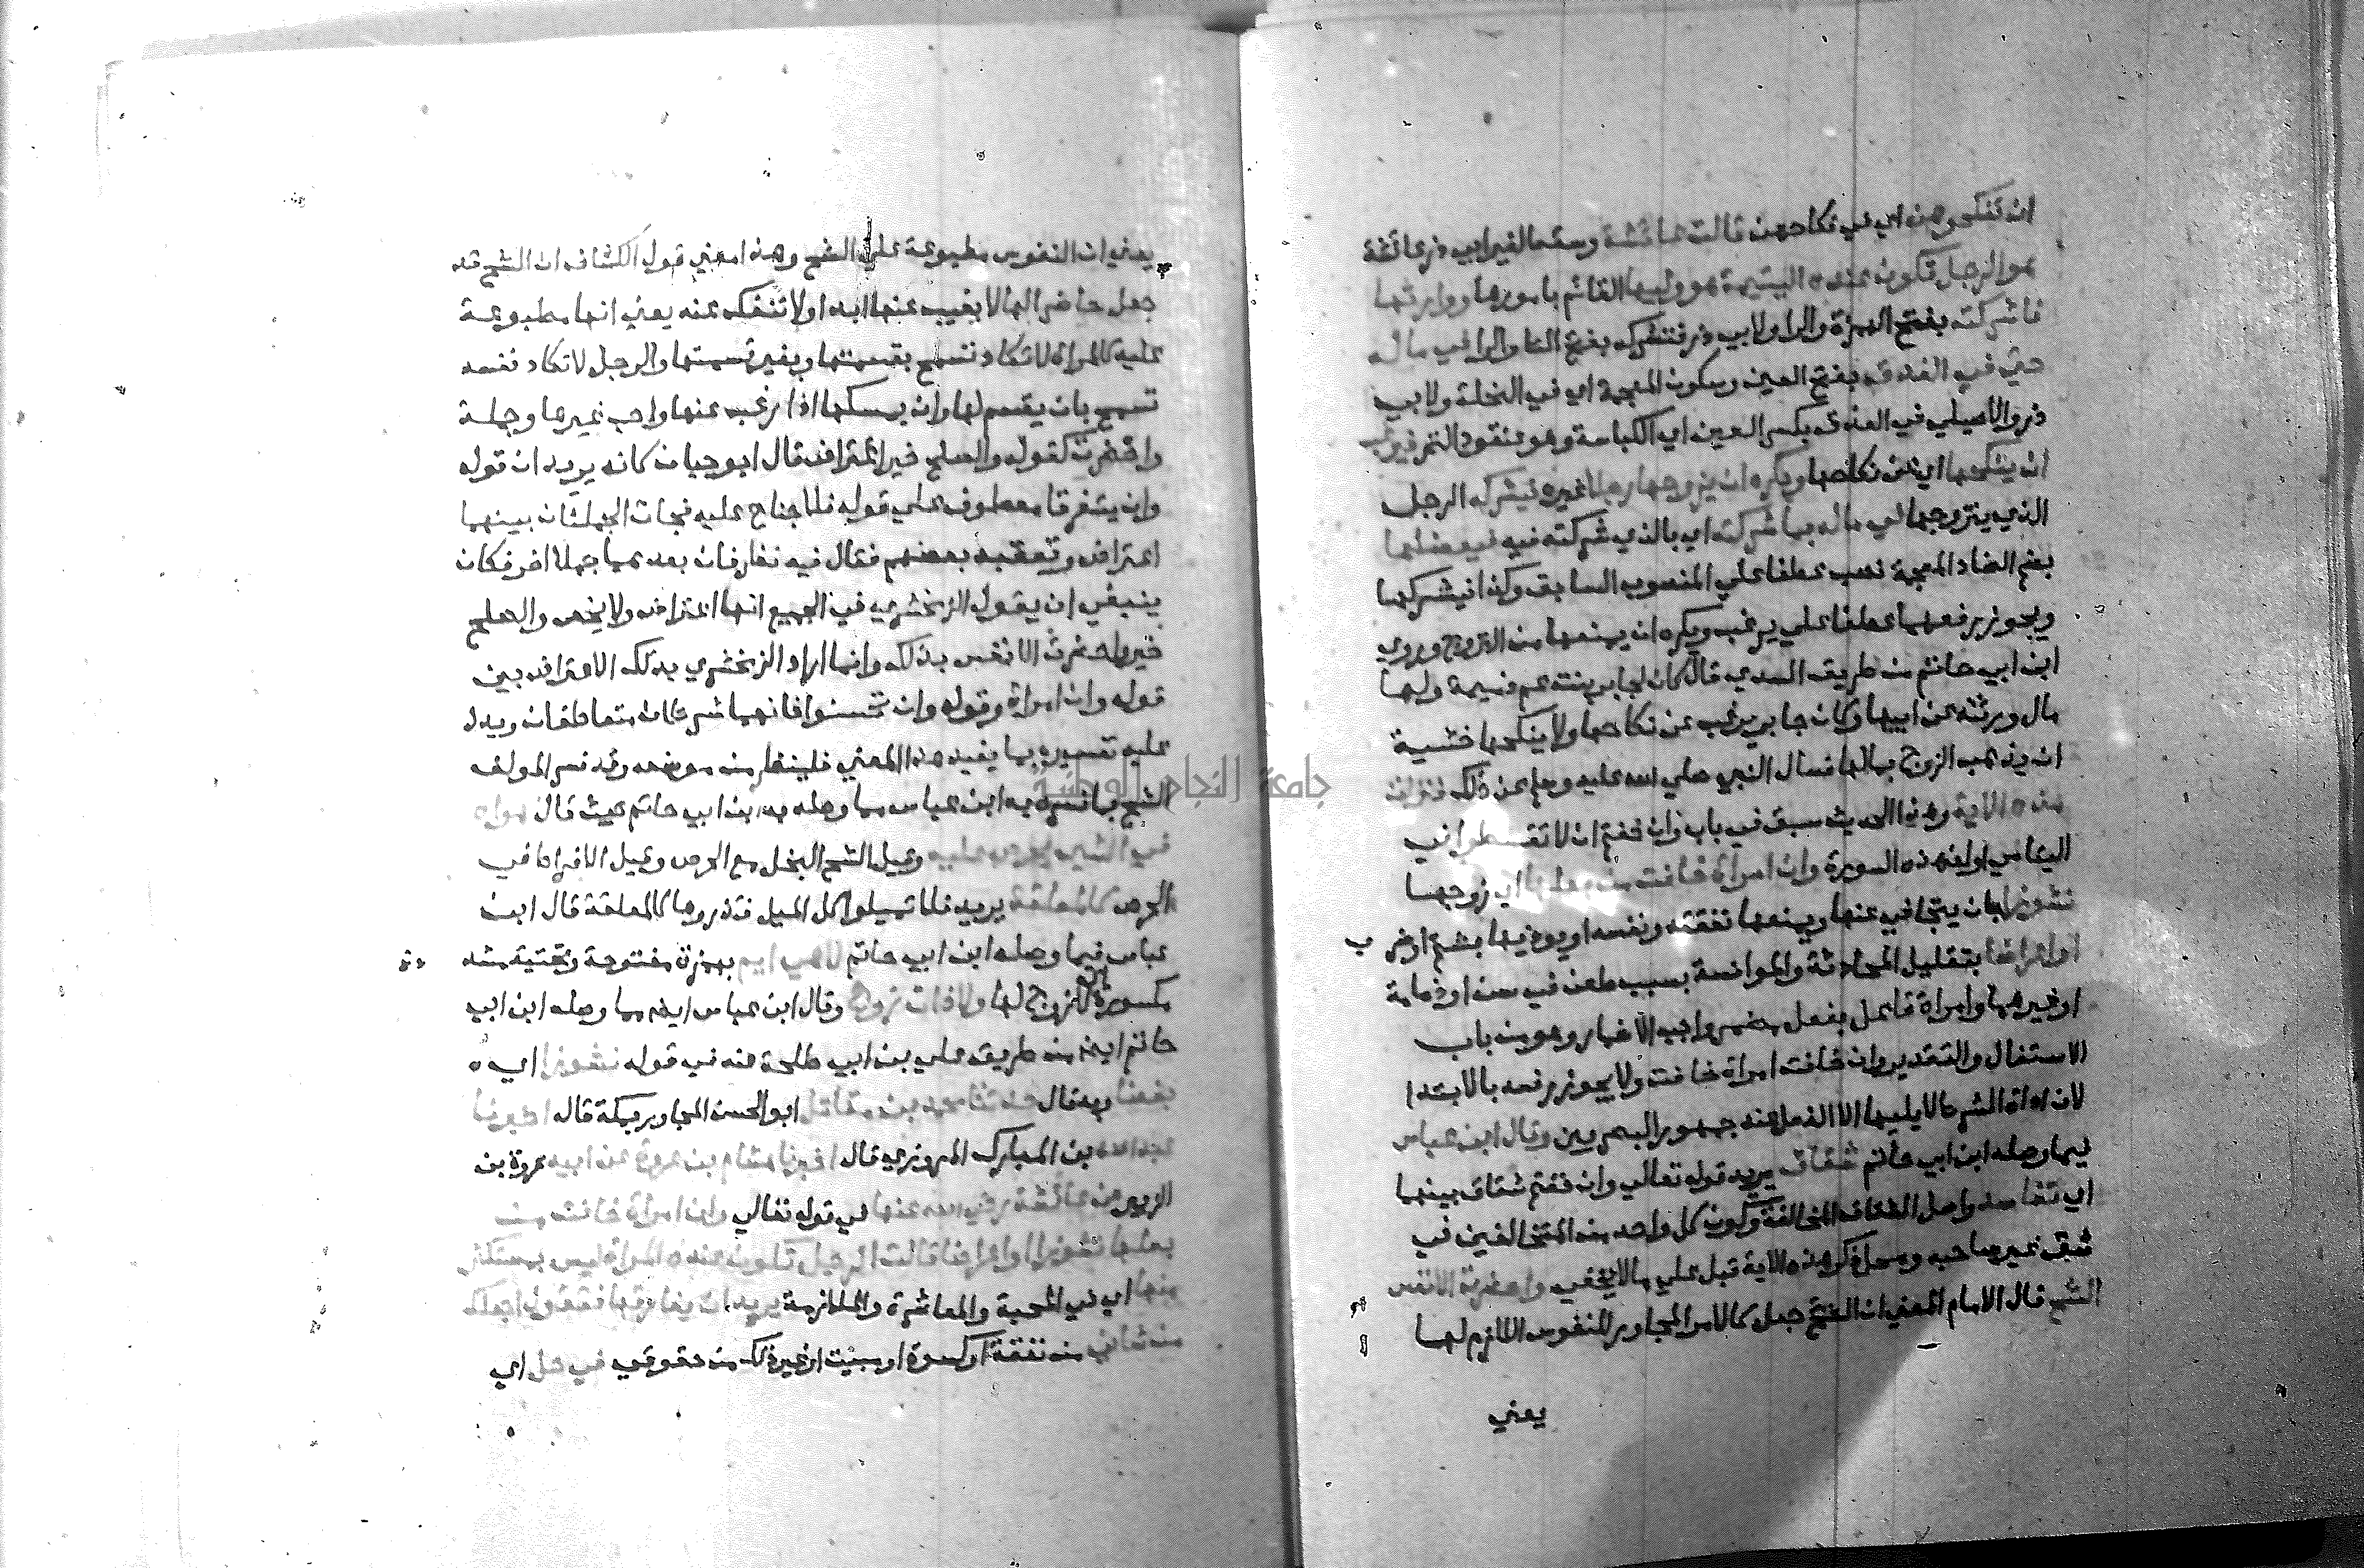 ان تنكحوهن اي في نكاحهن قالت عائشة وسقط لغير ابي ذر عائشة
هو الرجل تكون عنده اليتيمة هو وليها القائم بامورها ووارثها
فاشركته بفتح الهمزة والرا ولابي ذر فتشركه بفتح التا والرا في ماله
حتي في العذق بفتح العين وسكون المعجمة اي في النخلة ولابي
ذر والاصيلي في العذق بكسر العين اي الكباسة وهو عنقود التمر فيرغب
ان ينكحها اي عن نكاحها ويكره ان يزوجها رجلا غيره فيشركه الرجل
الذي يتزوجها في ماله بما شركته اي بالذي شركته فيه فيعضلها
بضم الضاد المعجمة نصب عطفا علي المنصوب السابق وكذا فيشركها
ويجوز رفعهما عطفا علي يرغب ويكره ان يمنعها من التزوج وروي
ابن ابي حاتم من طريق السدي قال كان لجابر بنت عم دميمة ولها
مال ورثته عن ابيها وكان جابر يرغب عن نكاحها ولا ينكحها خشية
ان يذهب الزوج بمالها فسال النبي صلي الله عليه وسلم عن ذلك فنزلت
هذه الاية وهذا الحديث سبق في باب وان خفتم ان لا تقسطوا في
اليتامي اول هذه السورة وان امراة خافت من بعلها اي زوجها
نشوزا بان يتجافي عنها ويمنعها نفقته ونفسه او يوذيها بشتم او ضرب
او اعراضا بتقليل المحادثة والموانسة بسبب طعن في سن او دمامة
او غيرهما وامراة فاعل بفعل مضمر واجب الاضمار وهو من باب
الاستغال والتقدير وان خافت امراة خافت ولا يجوز رفعه بالابتدا
لان اداة الشرط لا يليها الا الفعل عند جمهور البصريين وقال ابن عباس
فيما وصله ابن ابي حاتم شقاق يريد قوله تعالي وان خفتم شقاق بينهما
اي تفاسد واصل الشقاق المخالفة وكون كل واحد من المتخالفين في
شق غير صاحبه ومحل ذكر هذه الاية قبل علي ما لا يخفي واحضرت الانفس
الشح قال الامام المعني ان الشح جعل كالامر المجاور للنفوس اللازم لها
يعني
يعني ان النفوس مطبوعة علي الشح وهذا معني قول الكشاف ان الشح قد
جعل حاضرا لها لا يغيب عنها ابدا ولا تنفك عنه يعني انها مطبوعة
عليه فالمراة لا تكاد تسمح بقسمتها وبغير قسمتها والرجل لا تكاد نفسه
تسمح بان يقسم لها وان يمسكها اذا رغب عنها واحب غيرها وجملة
واحضرت كقوله والصلح خير اعتراض قال ابو حيان كانه يريد ان قوله
وان يتفرقا معطوف علي قوله فلا جناح عليه فجات الجملتان بينهما
اعتراض وتعقبه بعضهم فقال فيه نظر فان بعدهما جملا اخر فكان
ينبغي ان يقول الزمخشري في الجميع انها اعتراض ولا يخص والصلح
خير واحضرت الانفس بذلك وانما اراد الزمخشري بذلك الاعتراض بين
قوله وان امراة وقوله وان تحسنوا فانهما شرطان متعاطفان ويدل
عليه تفسيره بما يفيد هذا المعني فلينظر من موضعه وقد فسر المولف
الشح بما فسره به ابن عباس مما وصله به ابن ابي حاتم حيث قال هواه
في الشي يحرص عليه وقيل الشح البخل مع الحرص وقيل الافراط في
الحرص كالمعلقة يريد فلا تميلوا كل الميل فتذروها كالمعلقة قال ابن
عباس فيما وصله ابن ابي حاتم لا هي ايم بهمزة مفتوحة وتحتية مشددة
مكسورة اي لا زوج لها ولا ذات زوج وقال ابن عباس ايضا مما وصله ابن ابي
حاتم ايضا من طريق علي بن ابي طلحة عنه في قوله نشوزا اي
بغضا به قال حدثنا محمد بن مقاتل ابو الحسن المجاور بمكة قال اخبرنا
عبد الله بن المبارك المروزي قال اخبرنا هشام بن عروة عن ابيه عروة بن
الزبير عن عائشة رضي الله عنها في قوله تعالي وان امراة خافت من
بعلها نشوزا او اعراضا قالت الرجل تكون عنده المراة ليس بمستكثر
منها اي في المحبة والمعاشرة والملازمة يريد ان يفارقها فتقول اجعلك
من شاني من نفقة او كسوة او مبيت او غير ذلك من حقوقي في حل اي
جامعة النجاح الوطنية